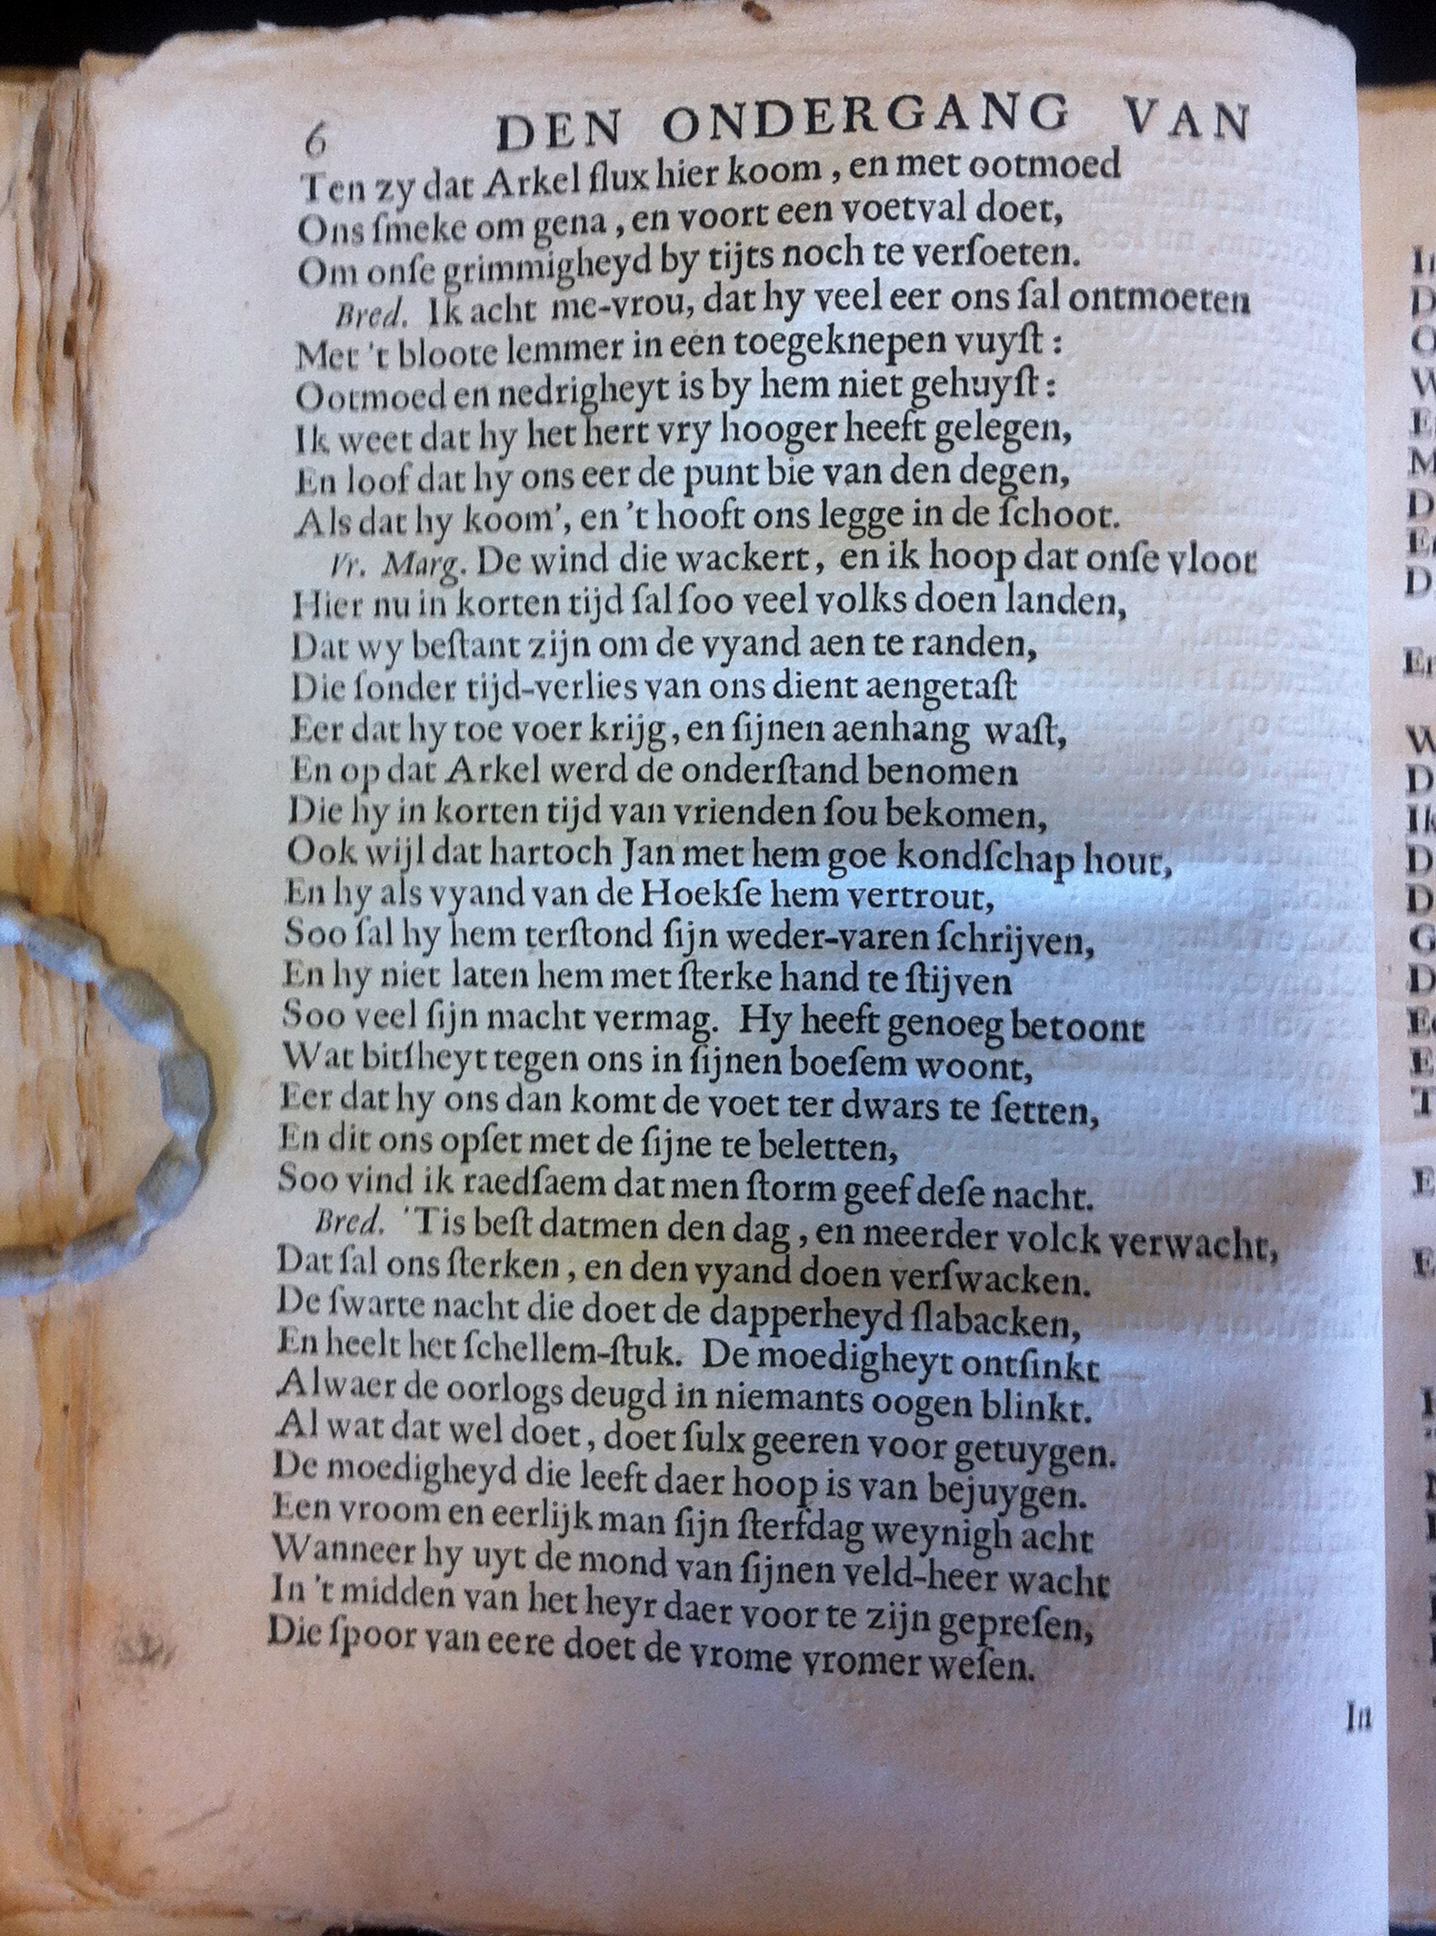 6 DEN ONDERGANG VAN
Ten zy dat Arkel flux hier koom, en met ootmoed
Ons ſmeke om gena, en voort een voetval doet,
Om onſe grimmigheyd by tijts noch te verſoeten.
Bred. Ik acht me-vrou, dat hy veel eer ons ſal ontmoeten
Met 't bloote lemmer in een toegeknepen vuyſt:
Ootmoed en nedrigheyt is by hem niet gehuyſt:
Ik weet dat hy het hert vry hooger heeft gelegen,
En loof dat hy ons eer de punt bie van den degen,
Als dat hy koom', en 't hooft ons legge in de ſchoot.
Vr. Marg. De wind die wackert, en ik hoop dat onſe vloot
Hier nu in korten tijd ſal ſoo veel volks doen landen,
Dat wy beſtant zijn om de vyand aen te randen,
Die ſonder tijd-verlies van ons dient aengetaſt
Eer dat hy toe voer krijg, en ſijnen aenhang waſt,
En op dat Arkel werd de onderſtand benomen
Die hy in korten tijd van vrienden ſou bekomen,
Ook wijl dat hartoch Jan met hem goe kondſchap hout,
En hy als vyand van de Hoekſe hem vertrout,
Soo ſal hy hem terſtond ſijn weder-varen ſchrijven,
En hy niet laten hem met ſterke hand te ſtijven
Soo veel ſijn macht vermag. Hy heeft genoeg betoont
Wat bitſheyt tegen ons in ſijnen boeſem woont,
Eer dat hy ons dan komt de voet ter dwars te ſetten,
En dit ons opſet met de ſijne te beletten,
Soo vind ik raedſaem dat men ſtorm geef deſe nacht.
Bred. 'Tis beſt datmen den dag, en meerder volck verwacht,
Dat ſal ons ſterken, en den vyand doen verſwacken.
De ſwarte nacht die doet de dapperheyd ſlabacken,
En heelt het ſchellem-ſtuk. De moedigheyt ontſinkt
Alwaer de oorlogs deugd in niemants oogen blinkt.
Al wat dat wel doet, doet ſulx geeren voor getuygen.
De moedigheyd die leeft daer hoop is van bejuygen.
Een vroom en eerlijk man ſijn ſterfdag weynigh acht
Wanneer hy uyt de mond van ſijnen veld-heer wacht
In 't midden van het heyr daer voor te zijn gepreſen,
Die ſpoor van eere doet de vrome vromer weſen.
In